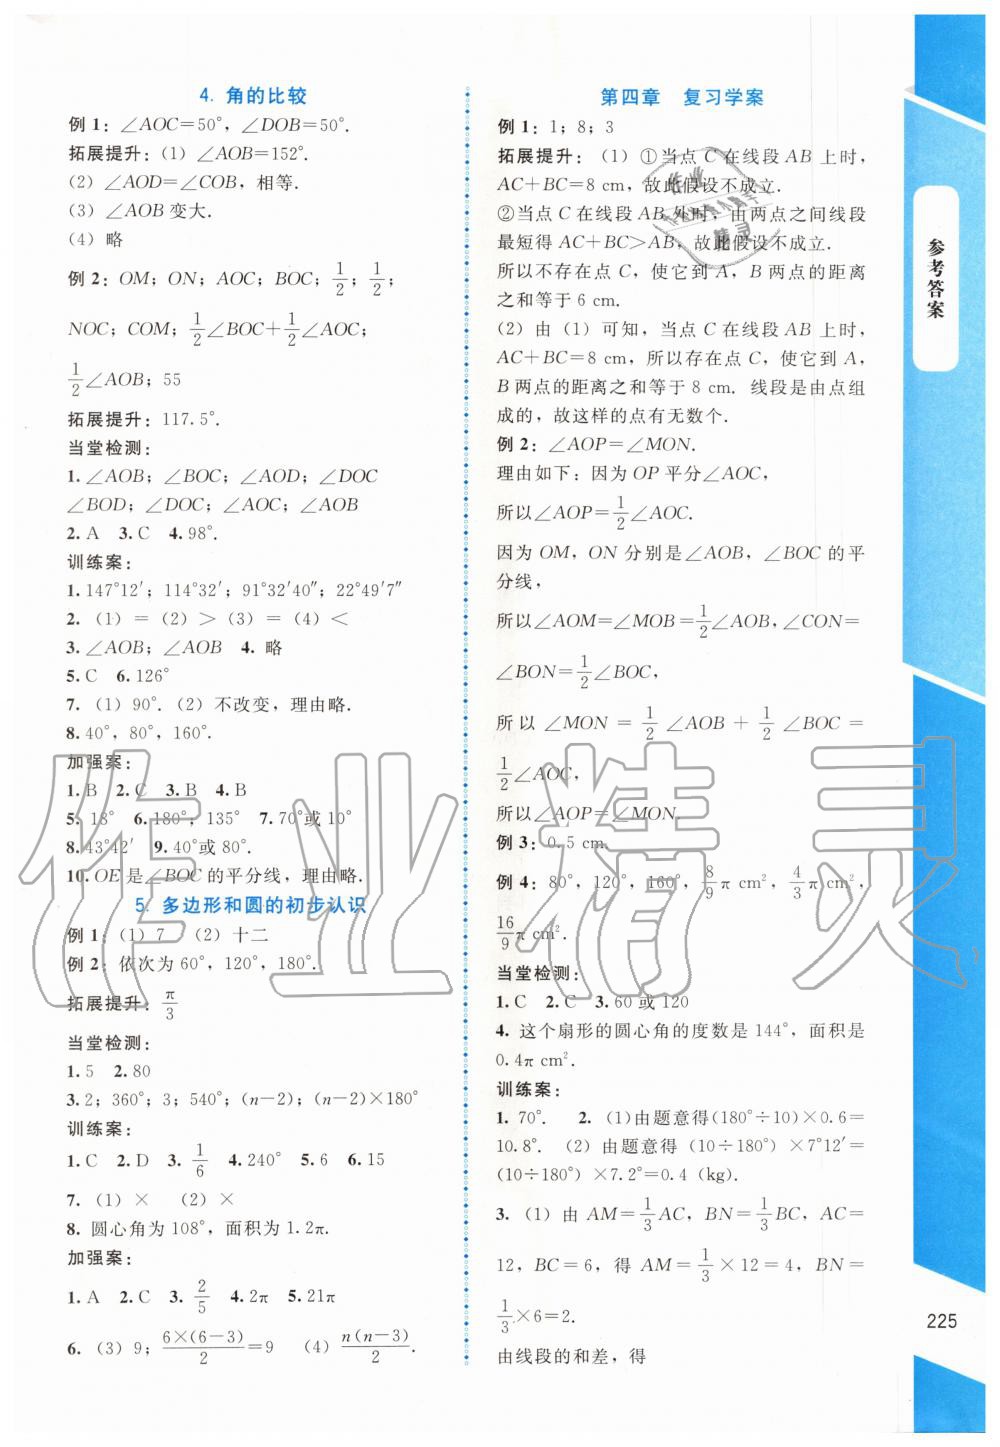 4. 角的比较
例 1：∠AOC=50°，∠DOB=50°.
拓展提升：（1）∠AOB=152°.
（2）∠AOD=∠COB，相等.
（3）∠AOB 变大.
（4）略
例 2：OM；ON；AOC；BOC；1/2；1/2；
NOC；COM；1/2∠BOC+1/2∠AOC；
1/2∠AOB；55
拓展提升：117.5°.
当堂检测：
1.∠AOB；∠BOC；∠AOD；∠DOC
∠BOD；∠DOC；∠AOC；∠AOB
2. A 3. C 4. 98°.
训练案：
1. 147°12′；114°32′；91°32′40″；22°49′7″
2.（1）=（2）>（3）=（4）<
3.∠AOB；∠AOB 4. 略
5. C 6. 126°
7.（1）90°.（2）不改变，理由略.
8. 40°，80°，160°.
加强案：
1. B 2. C 3. B 4. B
5. 18° 6. 180°，135° 7. 70°或 10°
8. 43°42′ 9. 40°或 80°.
10. OE 是∠BOC 的平分线，理由略.
5. 多边形和圆的初步认识
例 1：（1）7 （2）十二
例 2：依次为 60°，120°，180°.
拓展提升：π/3
当堂检测：
1. 5 2. 80
3. 2；360°；3；540°；(n−2)；(n−2)×180°
训练案：
1. C 2. D 3. 1/6 4. 240° 5. 6 6. 15
7.（1）× （2）×
8. 圆心角为 108°，面积为 1.2π.
加强案：
1. A 2. C 3. 2/5 4. 2π 5. 21π
6.（3）9；6×(6−3)/2=9 （4）n(n−3)/2.
第四章 复习学案
例 1：1；8；3
拓展提升：（1）①当点 C 在线段 AB 上时，
AC+BC=8 cm，故此假设不成立.
②当点 C 在线段 AB 外时，由两点之间线段
最短得 AC+BC>AB，故此假设不成立.
所以不存在点 C，使它到 A，B 两点的距离
之和等于 6 cm.
（2）由（1）可知，当点 C 在线段 AB 上时，
AC+BC=8 cm，所以存在点 C，使它到 A，
B 两点的距离之和等于 8 cm. 线段是由点组
成的，故这样的点有无数个.
例 2：∠AOP=∠MON.
理由如下：因为 OP 平分∠AOC，
所以∠AOP=1/2∠AOC.
因为 OM，ON 分别是∠AOB，∠BOC 的平
分线，
所以∠AOM=∠MOB=1/2∠AOB，∠CON=
∠BON=1/2∠BOC，
所以∠MON=1/2∠AOB+1/2∠BOC=
1/2∠AOC，
所以∠AOP=∠MON.
例 3：0.5 cm.
例 4：80°，120°，160°，8/9π cm²，4/3π cm²，
16/9π cm².
当堂检测：
1. C 2. C 3. 60 或 120
4. 这个扇形的圆心角的度数是 144°，面积是
0.4π cm².
训练案：
1. 70°. 2.（1）由题意得(180°÷10)×0.6=
10.8°.（2）由题意得（10÷180°）×7°12′=
(10÷180°)×7.2°=0.4（kg）.
3.（1）由 AM=1/3AC，BN=1/3BC，AC=
12，BC=6，得 AM=1/3×12=4，BN=
1/3×6=2.
由线段的和差，得
参考答案
225
作业精灵
作业
精灵